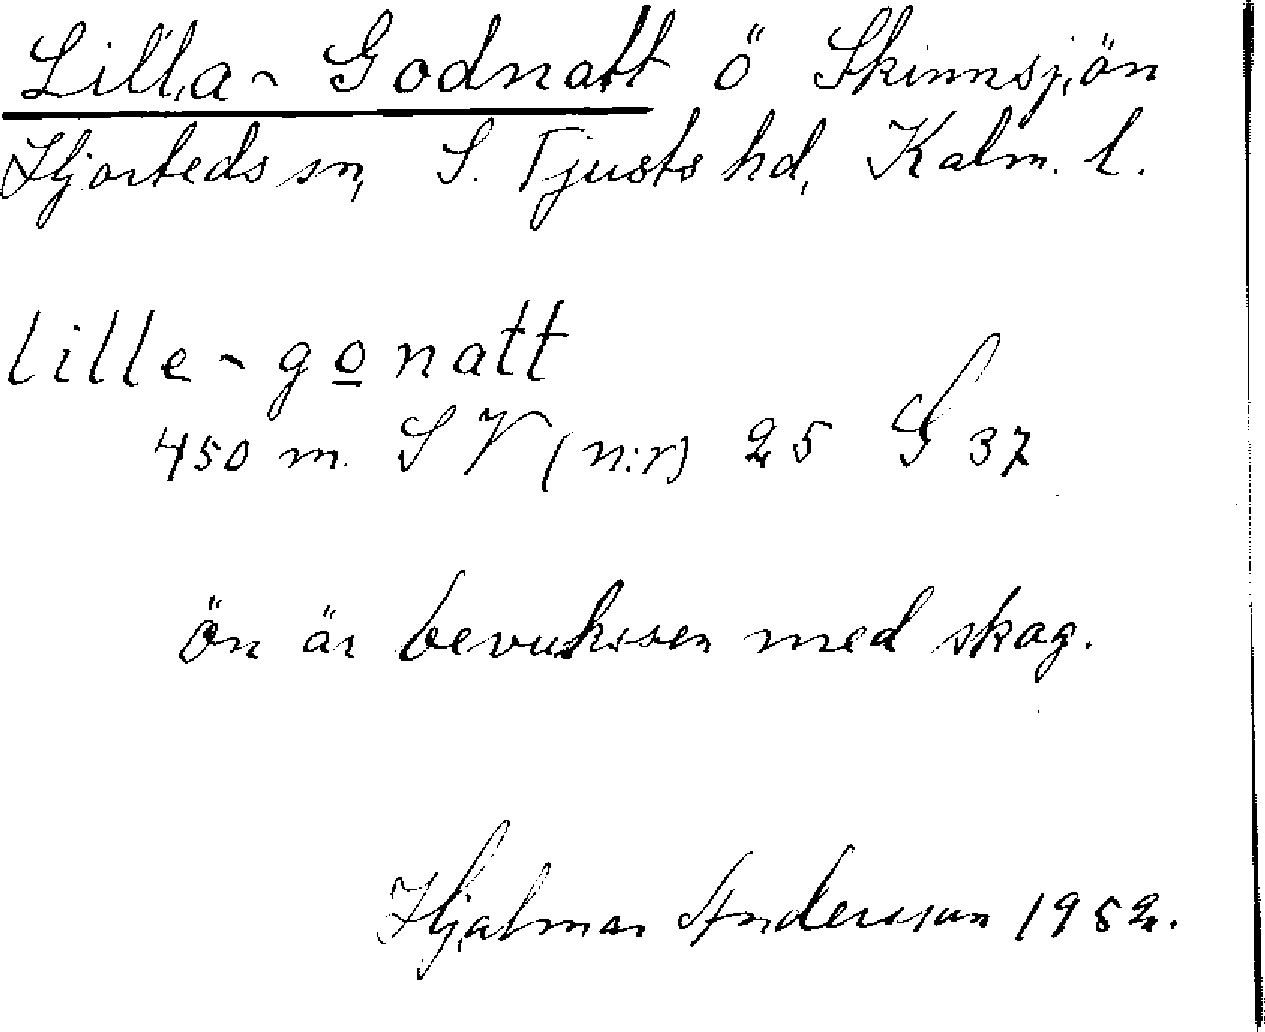 Lilla-Godnatt ö Skinnsjön
Hjorteds sn, S. Tjusts hd, Kalm. l.
lille-gonatt
450 m. SV (n:r) 25 G 37
ön är bevuksen med skog.
Hjalmar Andersson 1952.